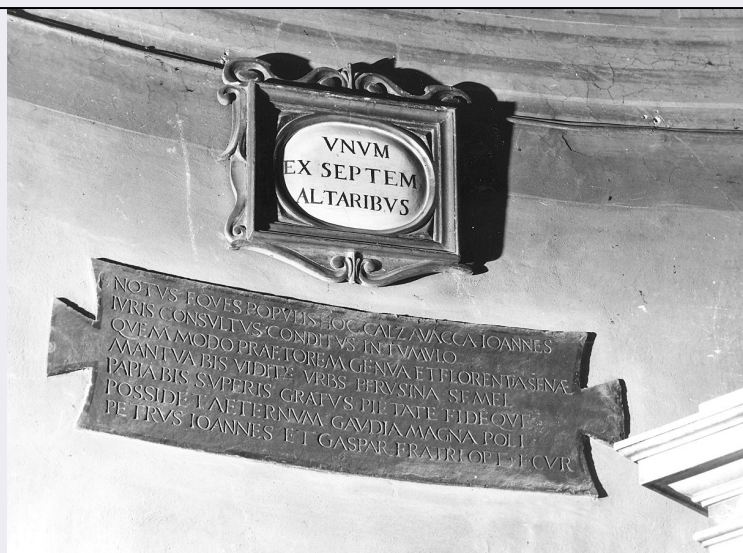 VNVM
EX SEPTEM
ALTARIBVS
NOTVS EQVES POPVLIS HOC CALZAVACCA IOANNES
IVRIS CONSVLTVS CONDITVS IN TVMVLO
QVEM MODO PRAETOREM GENVA ET FLORENTIA SENÆ
MANTVA BIS VIDIT VRBS PERVSINA SEMEL
PAPIA BIS SVPERIS GRATVS PIETATE FIDE QVE
POSSIDET AETERNVM GAVDIA MAGNA POLI
PETRVS IOANNES ET GASPAR FRATRI OPT CVR